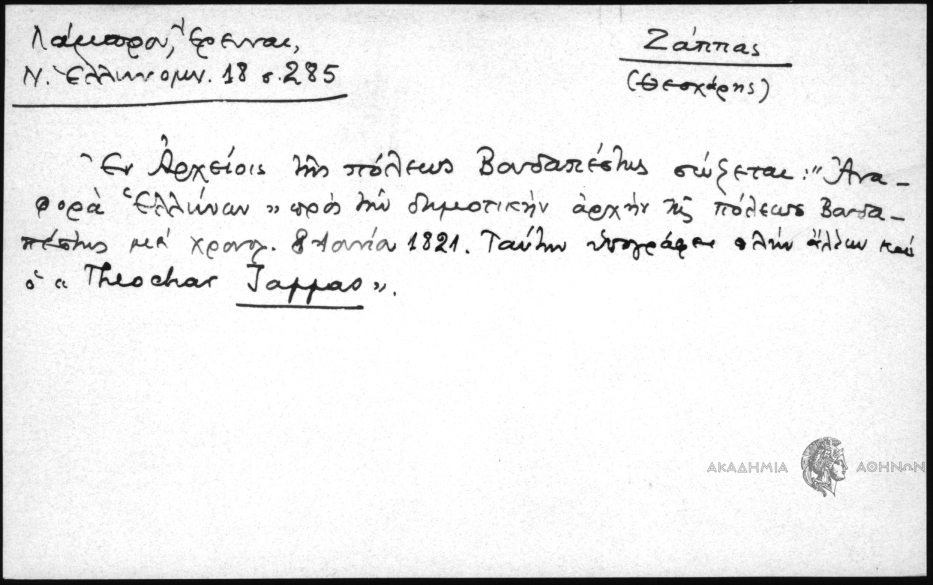 Λάμπρου, Ἔρευναι,
Ν. Ἑλληνομν. 18 σ. 285
Ζάππας
(Θεοχάρης)
Ἐν Ἀρχείοις τῆς πόλεως Βουδαπέστης σώζεται: "Ἀνα-
φορὰ Ἑλλήνων" πρὸς τὴν δημοτικὴν ἀρχὴν τῆς πόλεως Βουδα-
πέστης μὲ χρονολ. 8 Ἰουνίου 1821. Ταύτην ὑπογράφει πλὴν ἄλλων καὶ
ὁ « Theochar Zappas ».
ΑΚΑΔΗΜΙΑ ΑΘΗΝΩΝ